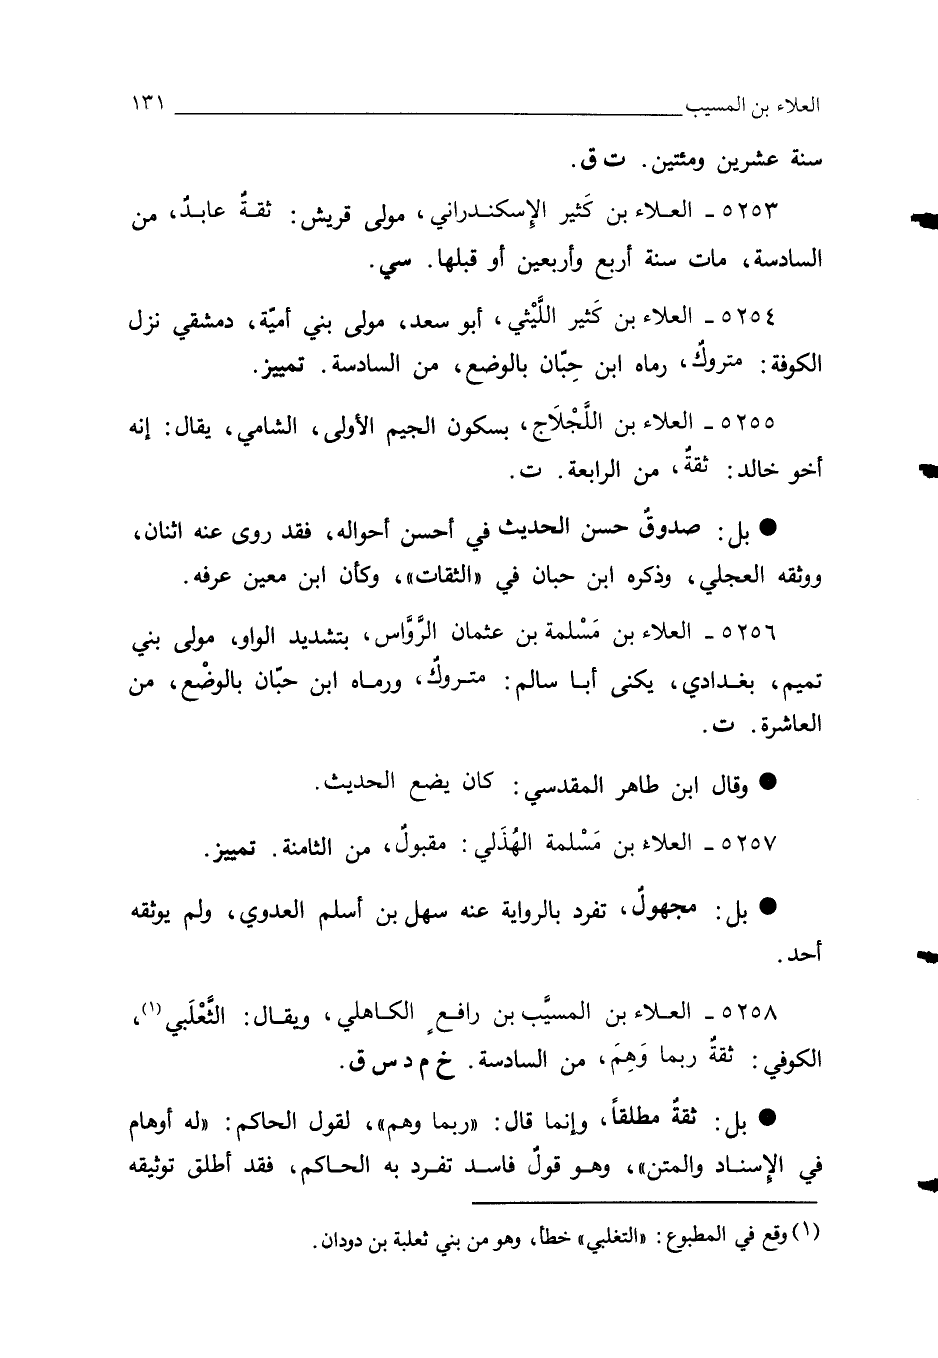 العلاء بن المسيب ١٣١
سنة عشرين ومئتين. ت ق.
٥٢٥٣ ـ العـلاء بن كَثير الإسكنـدراني، مولى قريش: ثقـةٌ عابـدٌ، من
السادسة، مات سنة أربع وأربعين أو قبلها. سي.
٥٢٥٤ ـ العلاء بن كَثير اللَّيْثي، أبو سعد، مولى بني أميّة، دمشقي نزل
الكوفة: متروكٌ، رماه ابن حِبّان بالوضع، من السادسة. تمييز.
٥٢٥٥ ـ العلاء بن اللَّجْلَاج، بسكون الجيم الأولى، الشامي، يقال: إنه
أخو خالد: ثقةٌ، من الرابعة. ت.
● بل: صدوقٌ حسن الحديث في أحسن أحواله، فقد روى عنه اثنان،
ووثقه العجلي، وذكره ابن حبان في «الثقات»، وكأن ابن معين عرفه.
٥٢٥٦ ـ العلاء بن مَسْلمة بن عثمان الرَّوَّاس، بتشديد الواو، مولى بني
تميم، بغـدادي، يكنى أبـا سالم: متـروكٌ، ورمـاه ابن حبّان بالوضْع، من
العاشرة. ت.
● وقال ابن طاهر المقدسي: كان يضع الحديث.
٥٢٥٧ ـ العلاء بن مَسْلمة الهُذَلي: مقبولٌ، من الثامنة. تمييز.
● بل: مجهولٌ، تفرد بالرواية عنه سهل بن أسلم العدوي، ولم يوثقه
أحد.
٥٢٥٨ ـ العـلاء بن المسيَّب بن رافـعٍ الكـاهلي، ويقـال: الثَّعْلَبي(١)،
الكوفي: ثقةٌ ربما وَهِمَ، من السادسة. خ م د س ق.
● بل: ثقةٌ مطلقاً، وإنما قال: «ربما وهم»، لقول الحاكم: «له أوهام
في الإسنـاد والمتن»، وهـو قولٌ فاسـد تفـرد به الحـاكم، فقد أطلق توثيقه
(١) وقع في المطبوع: «التغلبي» خطأ، وهو من بني ثعلبة بن دودان.